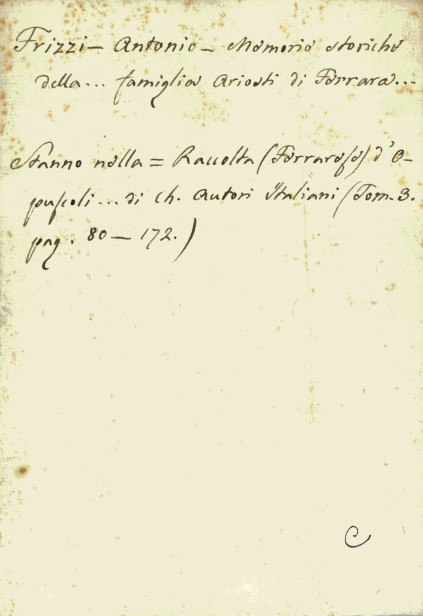 Frizzi – Antonio – Memorie storiche
della... famiglia Ariosti di Ferrara...
Stanno nella = Raccolta (Ferrarese) d'O-
puscoli... di ch. Autori Italiani (Tom. 3.
pag. 80 – 172.)
C